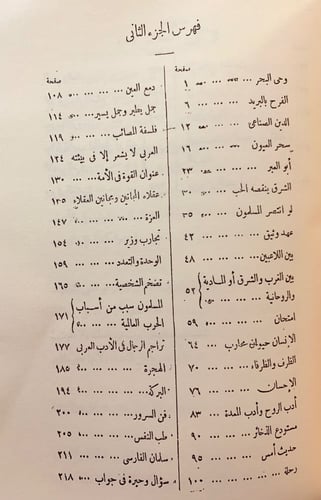 فهرس الجزء الثانى
صفحة
وحى البحر ... ... ... ١
الفرح بالبريد ... ... ٦
الدين الصناعى ... ... ١٢
سحر العيون ... ... ١٦
أبو العبر ... ... ... ٢٣
الشرق ينقصه الحب ... ٣٠
لو انتصر المسلمون ... ٣٥
عهد وثيق ... ... ... ٤٢
بين اللاعبين ... ... ٤٨
بين الغرب والشرق أو المادية
والروحانية ... ... ٥٢
امتحان ... ... ... ٥٩
الإنسان حيوان محارب ... ٦٤
الظرف والظرفاء ... ... ٧٠
الإحسان ... ... ... ٧٦
أدب الروح وأدب المعدة ... ٨٣
مستودع الذخائر ... ... ٩٠
حديث أمس ... ... ٩٥
رحلة ... ... ... ١٠٠
صفحة
دمع العين ... ... ... ١٠٨
جمل يطير وجمل يسير ... ١١٤
فلسفة المصائب ... ... ١١٩
العربى لا يشعر إلا فى بيئته ١٢٤
عنوان القوة فى الأمة ... ١٣٠
عقلاء المجانين ومجانين العقلاء ١٣٥
العزة ... ... ... ١٤٧
تجارب وزير ... ... ١٥٤
الوحدة والتعدد ... ... ١٥٩
تضخم الشخصية ... ... ١٦٥
المسلمون سبب من أسباب
الحرب العالمية ... ... ١٧١
تراجم الرجال فى الأدب العربى ١٧٧
الهجرة ... ... ... ١٨٥
البركة ... ... ... ١٩٤
فن السرور ... ... ... ٢٠٠
طب النفس ... ... ... ٢٠٥
سلمان الفارسى ... ... ٢١١
سؤال وحيرة فى جواب ... ٢١٨